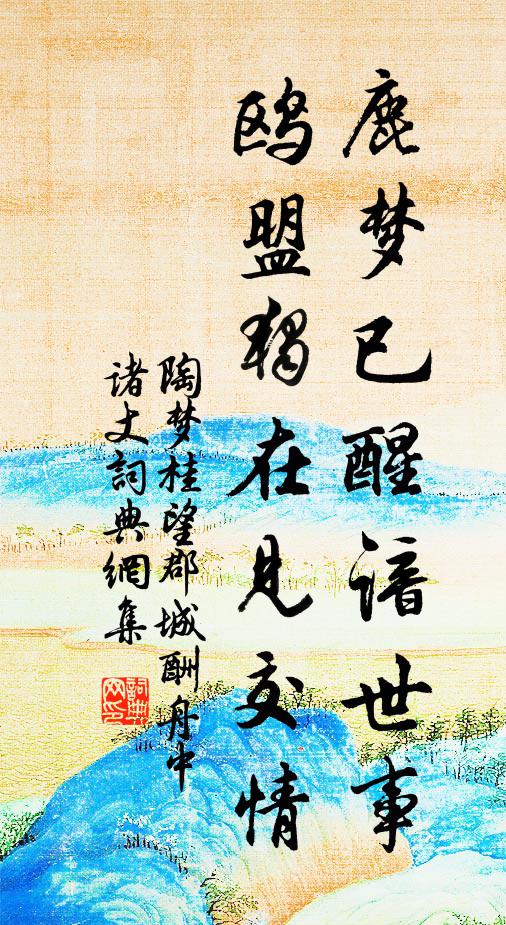 鹿梦已醒谙世事
鸥盟独在见交情
陶梦桂望郡城酬舟中
诸丈詞典網集
詞典网印